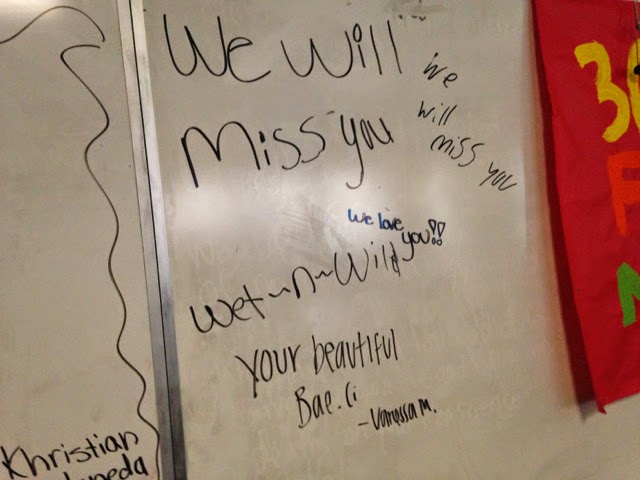 We Will
Miss you
we
will
miss you
We love
you!!
wet~n~Wild
your beautiful
Bae.Ci
-Vanessa M.
Khristian
36